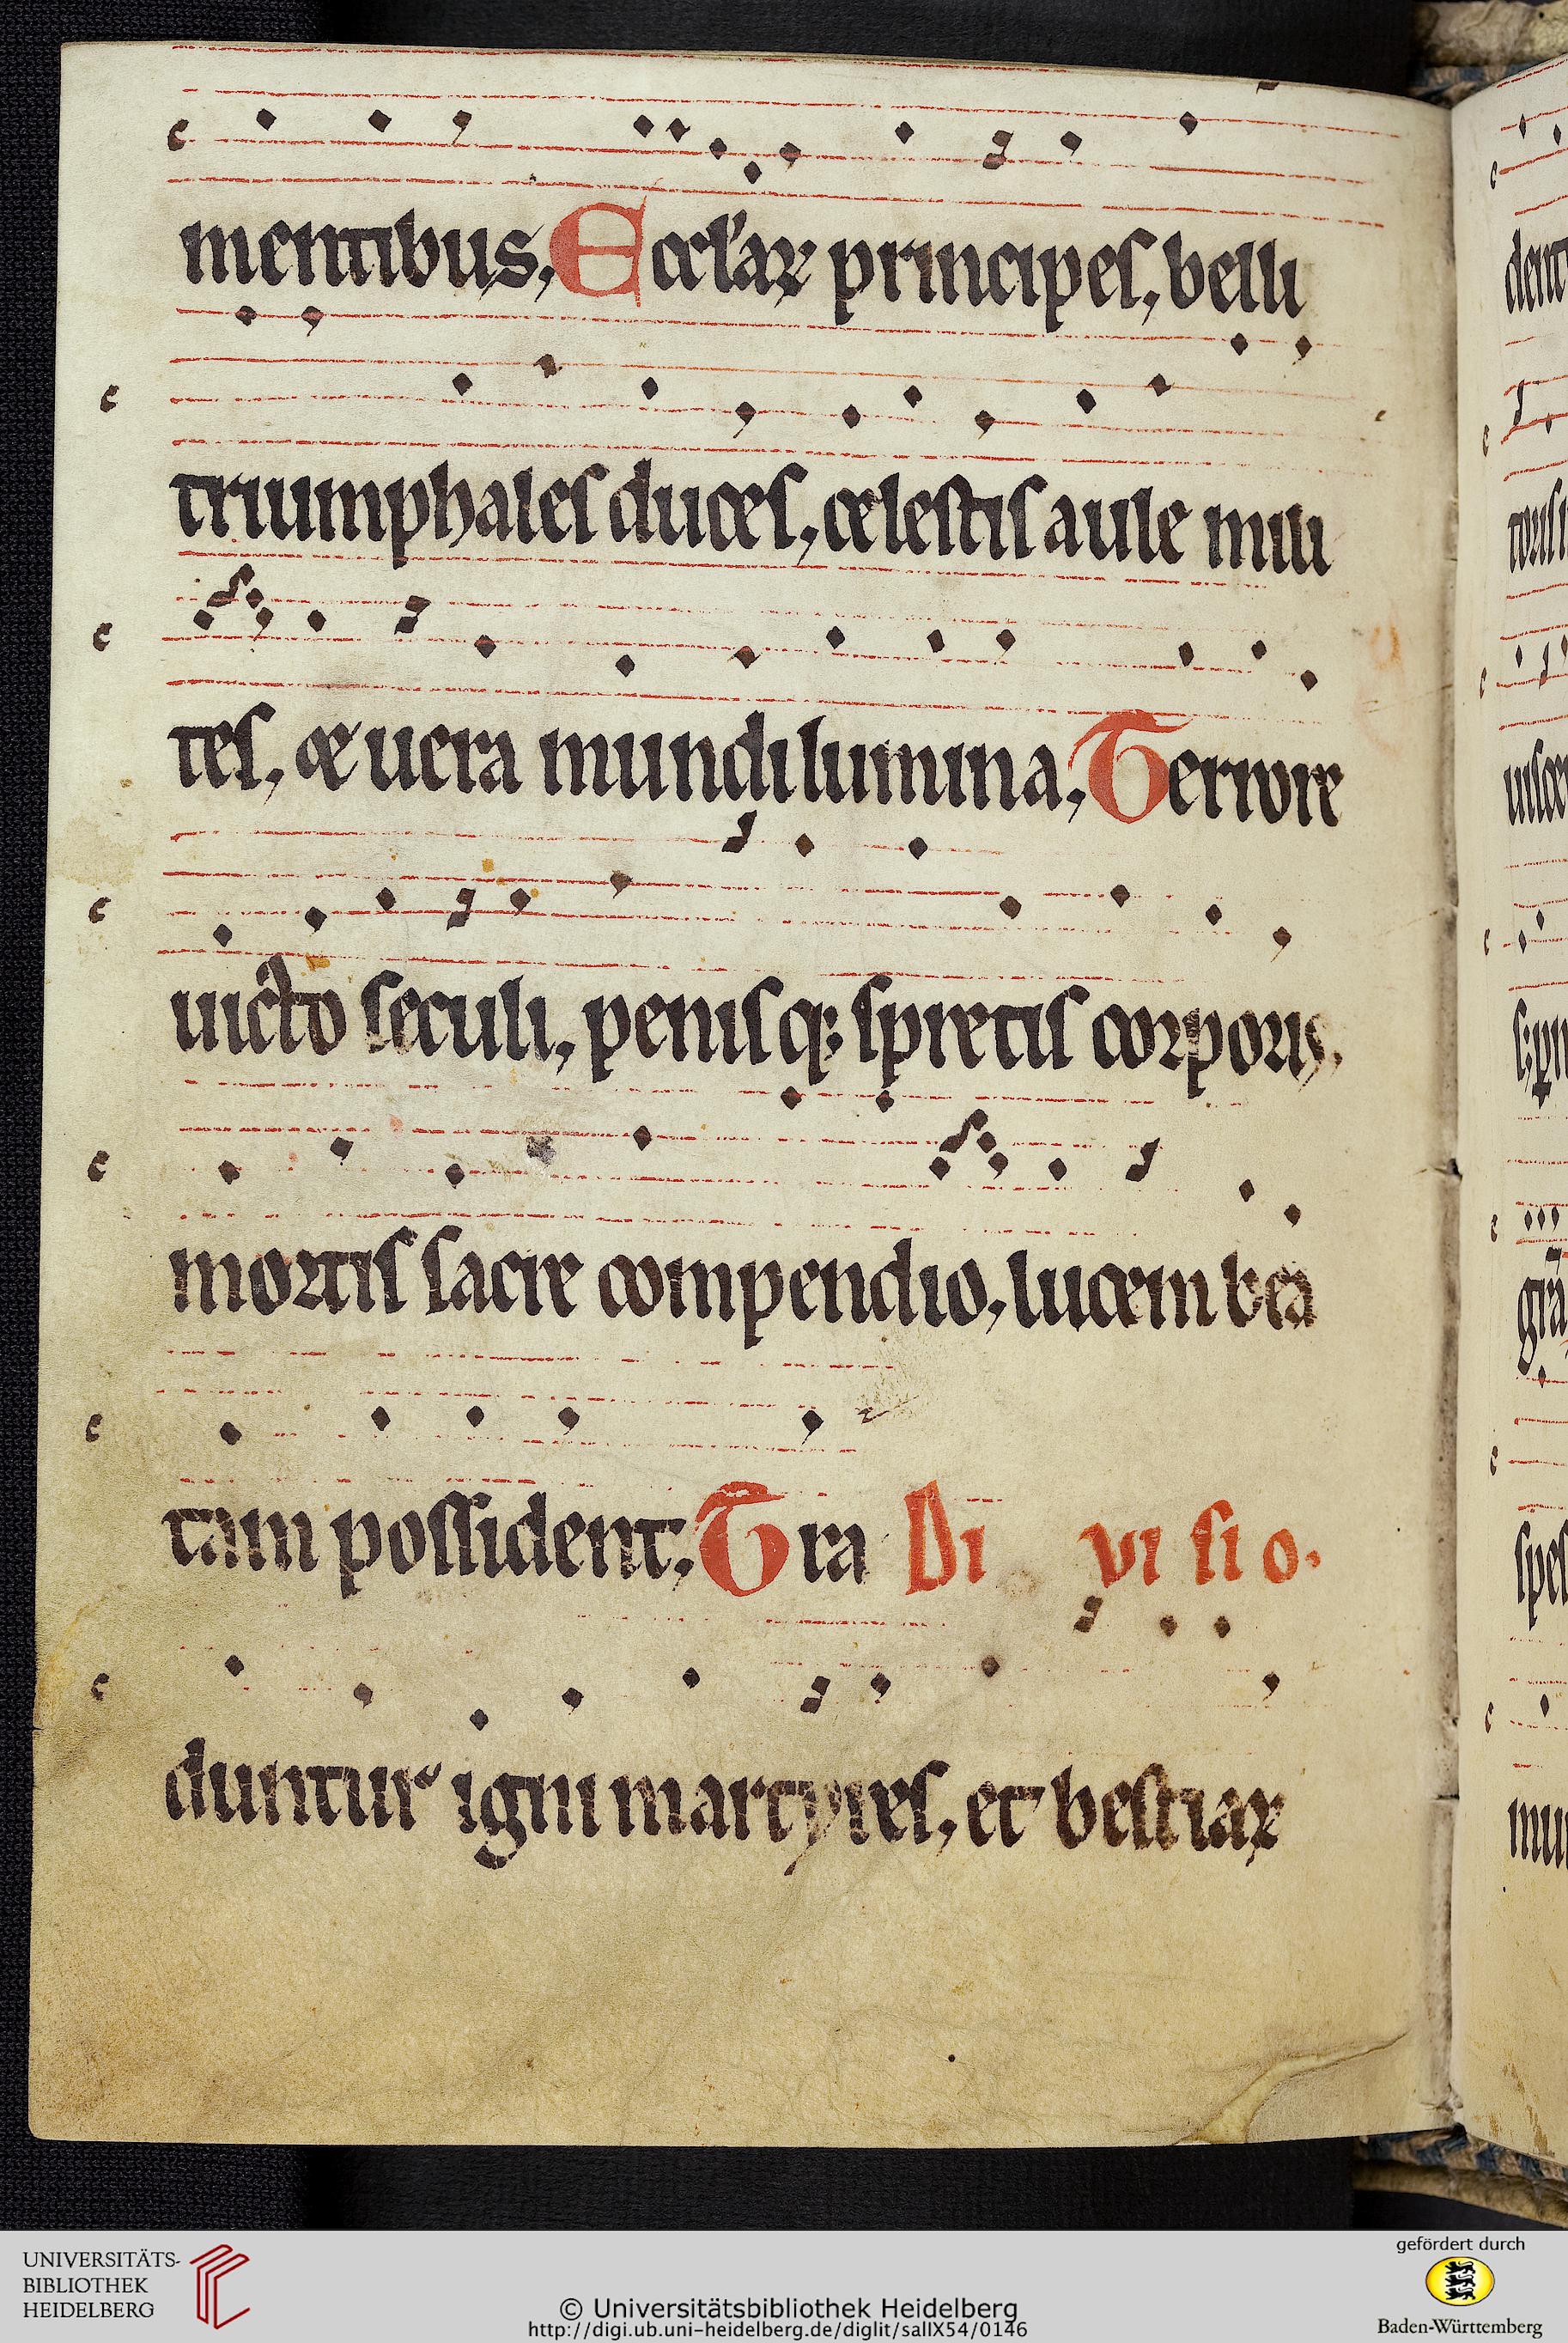 mentibus, Eccl'aꝝ principes, belli
triumphales duces, celestis aule mili
tes, et uera mundi lumina, Terrore
uicto seculi, penisqꝫ spretis corporis,
mortis sacre compendio, lucem bea
tam possident, Tra Di vi si o.
duntur igni martyres, et bestiaꝝ
UNIVERSITÄTS-
BIBLIOTHEK
HEIDELBERG
© Universitätsbibliothek Heidelberg
http://digi.ub.uni-heidelberg.de/diglit/salIX54/0146
gefördert durch
Baden-Württemberg